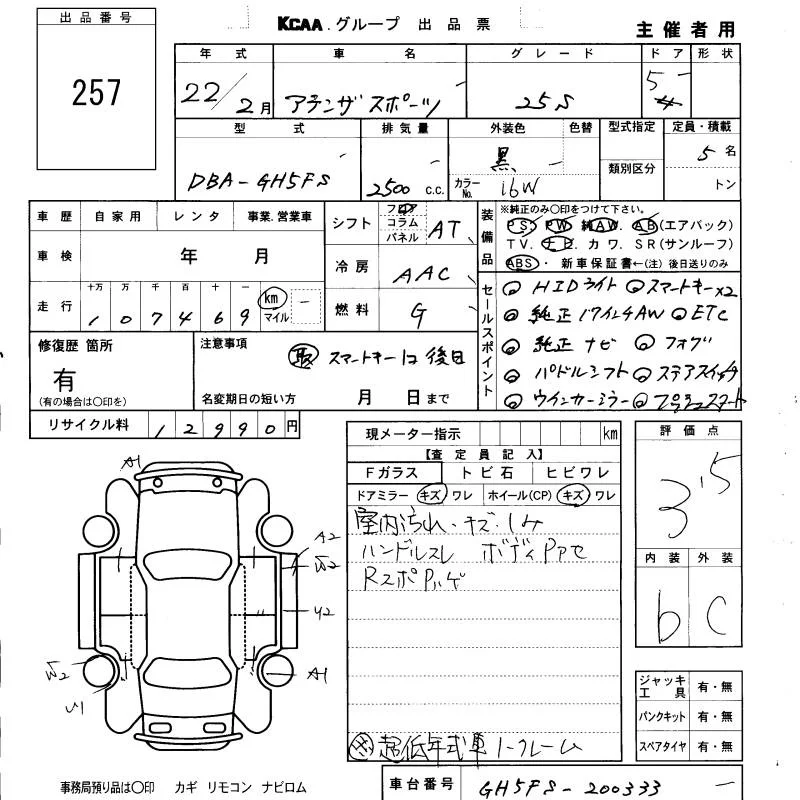 出品番号
257
KCAA.グループ 出品票
主催者用
年式 車名 グレード ドア 形状
22/2月 アテンザ スポーツ 25S 5
型式 排気量 外装色 色替 型式指定 定員・積載
DBA-GH5FS 2500 c.c. 黒 5名
カラーNo. 16W 類別区分 トン
車歴 自家用 レンタ 事業.営業車
シフト フロア コラム パネル AT
装備品 ※純正のみ〇印をつけて下さい。
PS PW 純AW. AB(エアバック)
車検 年 月
TV. ナビ カワ. SR(サンルーフ)
冷房 AAC
ABS・ 新車保証書←(注)後日送りのみ
走行 十万 万 千 百 十 一 km マイル
107469
燃料 G
セールスポイント
◎ HIDライト ◎ スマートキーx2
◎ 純正17インチAW ◎ ETC
◎ 純正ナビ ◎ フォグ
◎ パドルシフト ◎ ステアスイッチ
◎ ウインカーミラー ◎ プッシュスタート
修復歴 箇所
有
(有の場合は〇印を)
注意事項
取 スマートキー1コ後日
名変期日の短い方 月 日まで
リサイクル料 12990円
現メーター指示 km
【査定員記入】
Fガラス トビ石 ヒビワレ
ドアミラー キズ ワレ ホイール(CP) キズ ワレ
室内汚れ・キズ・シミ
ハンドルスレ ボディPアセ
RスポPハゲ
超低年式車 1-クレーム
評価点
3.5
内装 外装
b C
A1
A2
W2
U2
A1
W2
U1
ジャッキ工具 有・無
パンクキット 有・無
スペアタイヤ 有・無
事務局預り品は〇印 カギ リモコン ナビロム
車台番号 GH5FS-200333